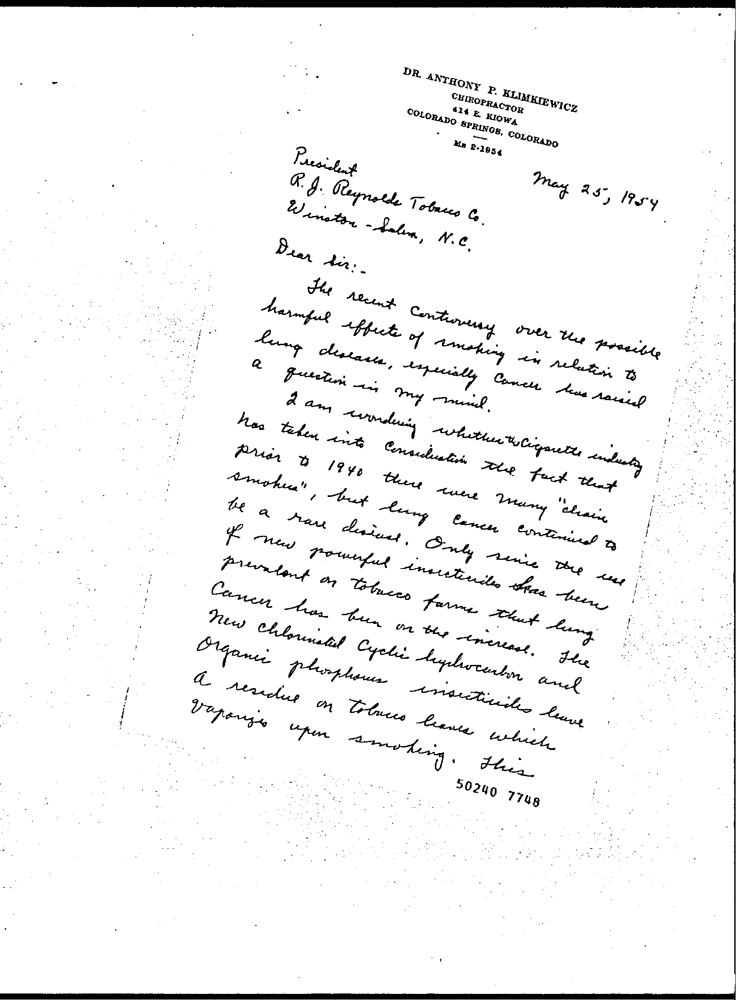 DR. ANTHONY P. KLIMKIEWICZ
CHIROPRACTOR
414 E. KIOWA
COLORADO SPRINGS, COLORADO
Me 2-1954
May 25, 1954
President
R. J. Reynolds Tobacco Co.
Winston-Salem, N.C.
Dear Sir:-
The recent controversy over the possible
harmful effects of smoking in relation to
lung diseases, especially cancer has raised
a question in my mind.
I am wondering whether the cigarette industry
has taken into consideration the fact that
prior to 1940 there were many "chain
smokers", but lung cancer continued to
be a rare disease. Only since the use
of new powerful insecticides has been
prevalent on tobacco farms that lung
cancer has been on the increase. The
new chlorinated cyclic hydrocarbon and
organic phosphorus insecticides leave
a residue on tobacco leaves which
vaporizes upon smoking. This
50240 7748